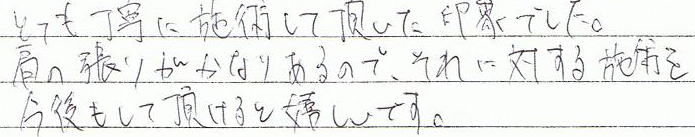 とても丁寧に施術して頂いた印象でした。
肩の張りがかなりあるので、それに対する施術を
今後もして頂けると嬉しいです。